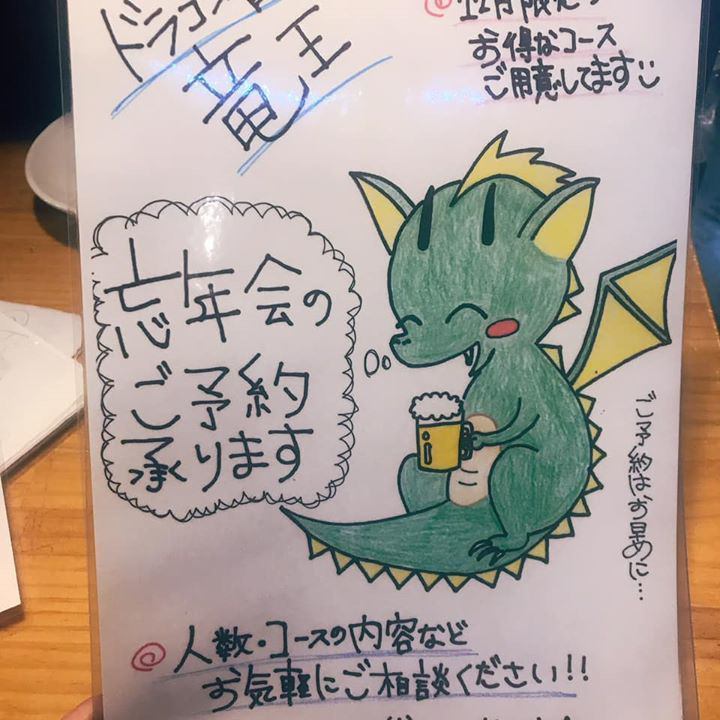 竜王
お得なコース
ご用意してます
忘年会の
ご予約
承ります
ご予約はお早めに…
人数・コースの内容など
お気軽にご相談ください!!